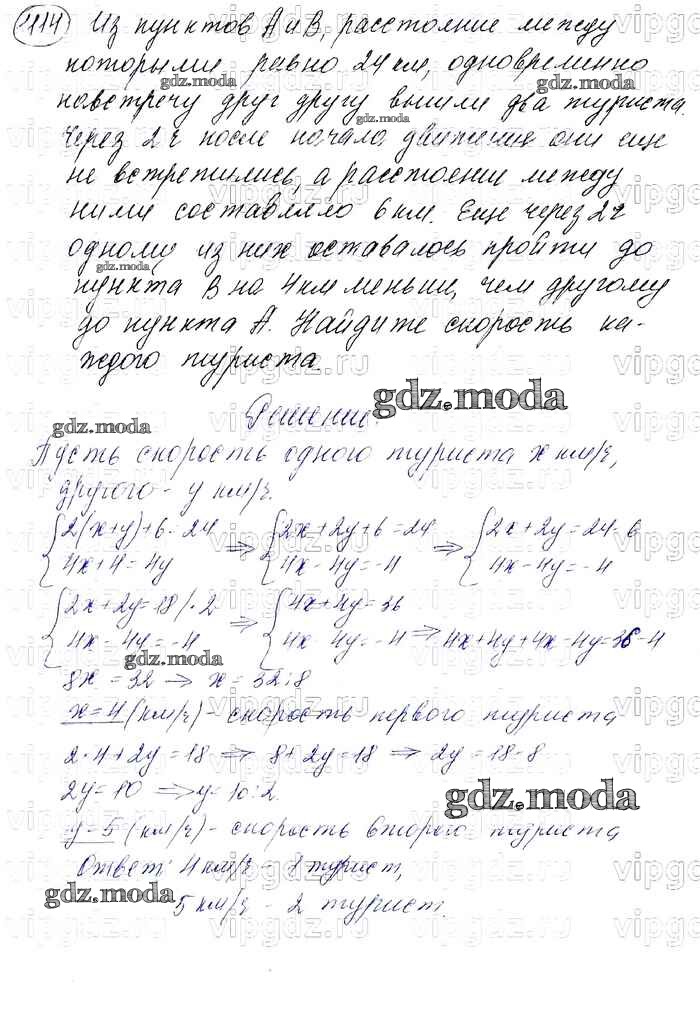 414 Из пунктов А и В, расстояние между
которыми равно 24 км, одновременно
навстречу друг другу вышли два туриста.
Через 2 ч после начала движения они еще
не встретились, а расстояние между
ними составляло 6 км. Еще через 2 ч
одному из них оставалось пройти до
пункта В на 4 км меньше, чем другому
до пункта А. Найдите скорость ка-
ждого туриста.
gdz.moda
Решение.
Пусть скорость одного туриста х км/ч,
другого - у км/ч.
{2(x+y)+6=24 => {2x+2y+6=24 => {2x+2y=24-6
{4x+4=4y {4x-4y=-4 {4x-4y=-4
{2x+2y=18/·2 => {4x+4y=36
{4x-4y=-4 {4x-4y=-4 => 4x+4y+4x-4y=36-4
8x=32 => x=32:8
x=4 (км/ч) - скорость первого туриста
2·4+2y=18 => 8+2y=18 => 2y=18-8
2y=10 => y=10:2
y=5 (км/ч) - скорость второго туриста
Ответ: 4 км/ч - 1 турист,
5 км/ч - 2 турист.
gdz.moda
vipgdz.ru